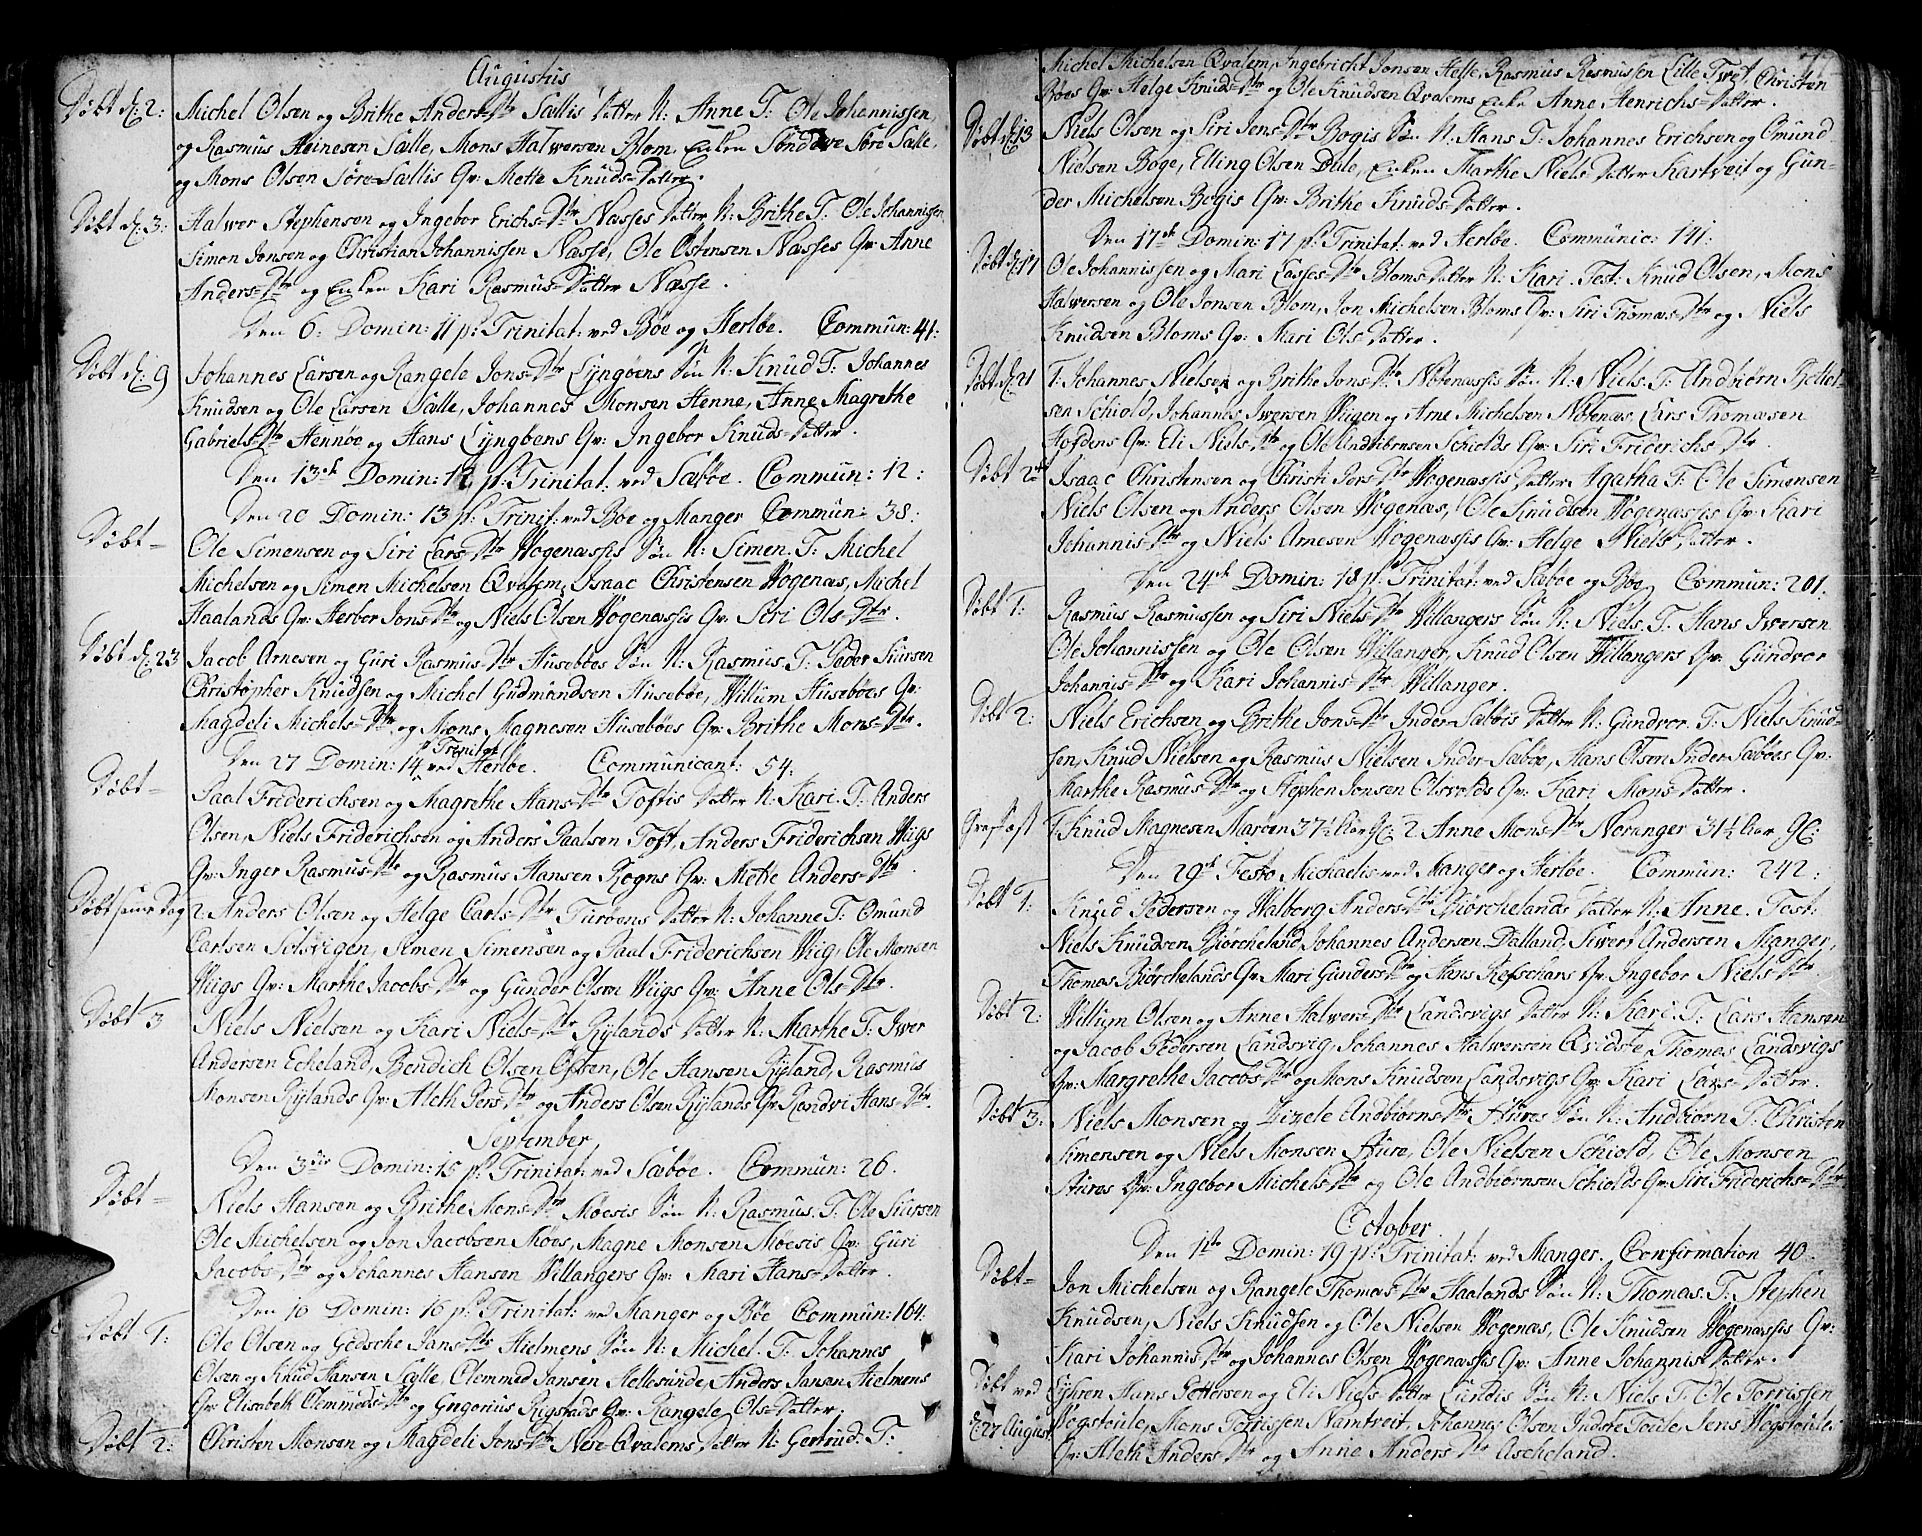 Augustus
Døbt d: 2: Michel Olsen og Brithe Anders-Dtr Sællis Datter N: Anne T: Ole Johannissen,
og Rasmus Heinesen Sælle, Mons Halwersen Blom, Enken Søre Sælle,
og Mons Olsen Søre-Sællis Qv: Mette Knuds-Datter.
Døbt d: 3: Halwer Stephensen og Ingebor Erichs-Dtr Næsses Datter N: Brithe T: Ole Johannissen
Simon Jonsen og Christian Johannissen Næsse, Ole Østensen Næsses Qv: Anne
Anders-Dtr og Enken Kari Rasmus-Datter Næsse.
Den 6: Domin: 11 p: Trinitat: ved Bøe og Herløe. Commun: 41:
Døbt d: 9 Johannes Larsen og Rangele Jons-Dtr Lyngøens Søn N: Knud T: Johannes
Knudsen og Ole Larsen Sælle, Johannes Monsen Henne, Anne Magrethe
Gabriels-Dtr Hennøe og Hans Lyngøens Qv: Ingebor Knuds-Datter.
Den 13de Domin: 12 p: Trinitat: ved Sæbøe. Commun: 12:
Den 20 Domin: 13 p: Trinit: ved Boe og Manger Commun: 38:
Døbt - Ole Simensen og Siri Lars-Dtr Wogenæssis Søn N: Simen. T: Michel
Michelsen og Simen Michelsen Qvalem, Isaac Christensen Wogenæs, Michel
Haalands Qv: Herbor Jons-Dtr og Niels Olsen Wogenæssis Qv: Siri Ols-Dtr.
Døbt d: 23 Jacob Arnesen og Guri Rasmus-Dtr Husebøes Søn N: Rasmus. T: Peder Siursen
Christopher Knudsen og Michel Gudmundsen Husebøe, Willum Husebøes Qv:
Magdeli Michels-Dtr og Mons Magnesen Husebøes Qv: Brithe Mons-Dtr.
Den 27 Domin: 14 p Trinitat ved Herløe. Communicant: 54:
Døbt - Paal Friderichsen og Magrethe Hans-Dtr Toftis Datter N: Kari. T: Anders
Olsen, Niels Friderichsen og Anders Paalsen Toft, Anders Friderichsen Wiigs
Qv: Inger Rasmus-Dtr og Rasmus Hansen Rogns Qv: Mette Anders-Dtr.
Døbt samme Dag 2 Anders Olsen og Helge Carls-Dtr Turøens Datter N: Johanne T: Omund
Carlsen Solsvigen, Simen Simensen og Paal Friderichsen Wiig, Ole Monsen
Wiigs Qv: Marthe Jacobs-Dtr og Gunder Olsen Wiigs Qv: Anne Ols-Dtr.
Døbt 3 Niels Nielsen og Kari Niels-Dtr Rylands Datter N: Marthe T: Iwer
Andersen Eckeland, Bendich Olsen Østen, Ole Hansen Ryland, Rasmus
Monsen Rylands Qv: Aleth Pers-Dtr og Anders Olsen Rylands Qv: Randvi Hans-Dtr.
September
Den 3die Domin: 15 p: Trinitat: ved Sæbøe. Commun: 26.
Døbt - Niels Hansen og Brithe Mons-Dtr Møesis Søn N: Rasmus. T: Ole Siursen
Ole Michelsen og Jon Jacobsen Møes, Magne Monsen Møesis Qv: Guri
Jacobs-Dtr og Johannes Hansen Willangers Qv: Mari Hans-Datter.
Den 10 Domin: 16 p: Trinitat: ved Manger og Bøe Commun: 164.
Døbt 1: Ole Olsen og Gødsche Jans-Dtr Hielmens Søn N: Michel. T: Johannes
Olsen og Knud Hansen Sælle Clemmed Jansen Hellesunde, Anders Jansen Hielmens
Qv: Elisabeth Clemmeds-Dtr og Gregorius Rigstads Qv: Rangele Ols-Datter.
Døbt 2: Christen Monsen og Magdeli Jons-Dtr Nere Qvalems Datter N: Gertrud. T:
Michel Michelsen Qvalem, Ingebricht Jonsen Helle, Rasmus Rasmussen Lille Twet, Christen
Boes Qv: Helge Knuds-Dtr og Ole Knudsen Qvalems Enke Anne Henrichs-Datter.
Døbt d: 13 Niels Olsen og Siri Jens-Dtr Bogis Søn N: Hans T: Johannes Erichsen og Omund
Nielsen Boge, Elling Olsen Dale, Enken Marthe Niels Datter Kartveit og Gun-
der Michelsen Bogis Qv: Brithe Knuds-Datter.
Den 17de Domin: 17 p: Trinitat: ved Herløe. Communic: 141:
Døbt d: 17 Ole Johannissen og Mari Lasses-Dtr Bloms-Datter N: Kari. Test: Knud Olsen, Mons
Halwersen og Ole Jonsen Blom, Jon Michelsen Bloms Qv: Siri Thomæs-Dtr og Niels
Knudsen Bloms Qv: Mari Ols-Datter.
Døbt d: 21 T: Johannes Nielsen og Brithe Jons-Dtr Nøtenæssis Søn N: Niels. T: Andbiørn Bottel-
sen Schiold, Johannes Iwersen Wiigen og Arne Michelsen Nøtenæs, Lars Thomæsen
Hofdens Qv: Eli Niels-Dtr og Ole Andbiørnsen Schiolds Qv: Siri Friderichs-Dtr.
Døbt 2 Isaac Christensen og Christi Jons-Dtr Wogenæssis Datter Agatha T: Ole Simensen
Niels Olsen og Anders Olsen Wogenæs, Ole Knudsen Wogenæssis Qv: Kari
Johannis-Dtr og Niels Arnesen Wogenæssis Qv: Helge Niels Datter.
Den 24de Domin: 18 p: Trinitat: ved Sæbøe og Bøe Commun: 201.
Døbt 1: Rasmus Rasmussen og Siri Niels-Dtr Willangers Søn N: Niels. T: Hans Iwersen
Ole Johannissen og Ole Olsen Willanger, Knud Olsen Willangers Qv: Gundvor
Johannis-Dtr og Kari Johannis-Dtr Willanger.
Døbt 2: Niels Erichsen og Brithe Jons-Dtr Inder Sæbøis Datter N: Gundvor. T: Niels Knud-
sen, Knud Nielsen og Rasmus Nielsen Inder-Sæbøe, Hans Olsen Inder-Sæbøes Qv:
Marthe Rasmus-Dtr og Stephen Jonsen Olsvolds Qv: Kari Mons-Datter.
Graf-fæst 1 Knud Magnesen Marøen 37½ Aar G: 2 Anne Mons-Dtr Noranger 31½ Aar G:
Den 29de Festo Michaelis ved Manger og Herløe. Commun: 242:
Døbt 1: Knud Pedersen og Walborg Anders-Dtr Biørchelands Datter N: Anne. Test:
Niels Knudsen Biørcheland, Johannes Andersen Dalland, Siwert Andersen Manger,
Thomas Biørchelands Qv: Mari Gunders-Dtr og Hans Refschars Qv: Ingebor Niels-Dtr.
Døbt 2: Willum Olsen og Anne Halwers-Dtr Landsvigs Datter N: Kari. T: Lars Hansen
og Jacob Pedersen Landsvig, Johannes Halwersen Qvidste, Thomas Landsvigs
Qv: Margrethe Jacobs-Dtr og Mons Knudsen Landsvigs Qv: Kari Lars-Datter.
Døbt 3: Niels Monsen og Zizele Andbiørns-Dtr Hures Søn N: Andbiørn T: Christen
Simensen og Niels Monsen Hure, Ole Nielsen Schiold, Ole Monsen
Hures Qv: Ingebor Michels-Dtr og Ole Andbiørnsen Schiolds Qv: Siri Friderichs-Dtr
October
Den 1ste Domin: 19 p: Trinitat: ved Manger. Confirmation 40.
Døbt - Jon Michelsen og Rangele Thomæs-Dtr Haalands Søn N: Thomas. T: Stephen
Knudsen, Niels Knudsen og Ole Nielsen Wogenæs, Ole Knudsen Wogenæssis Qv:
Kari Johannis-Dtr og Johannes Olsen Wogenæssis Qv: Anne Johannis-Datter.
Døbt ved Lyhsen Hans Pettersen og Eli Niels-Datter Lundis Søn N: Niels T. Ole Torrissen
27 August Wogstoile, Mons Torrissen Namtveit, Johannes Olsen Indre Toule Jens Wogstoiles
Qv: Aleth Anders-Dtr og Anne Anders-Dtr Ascheland.